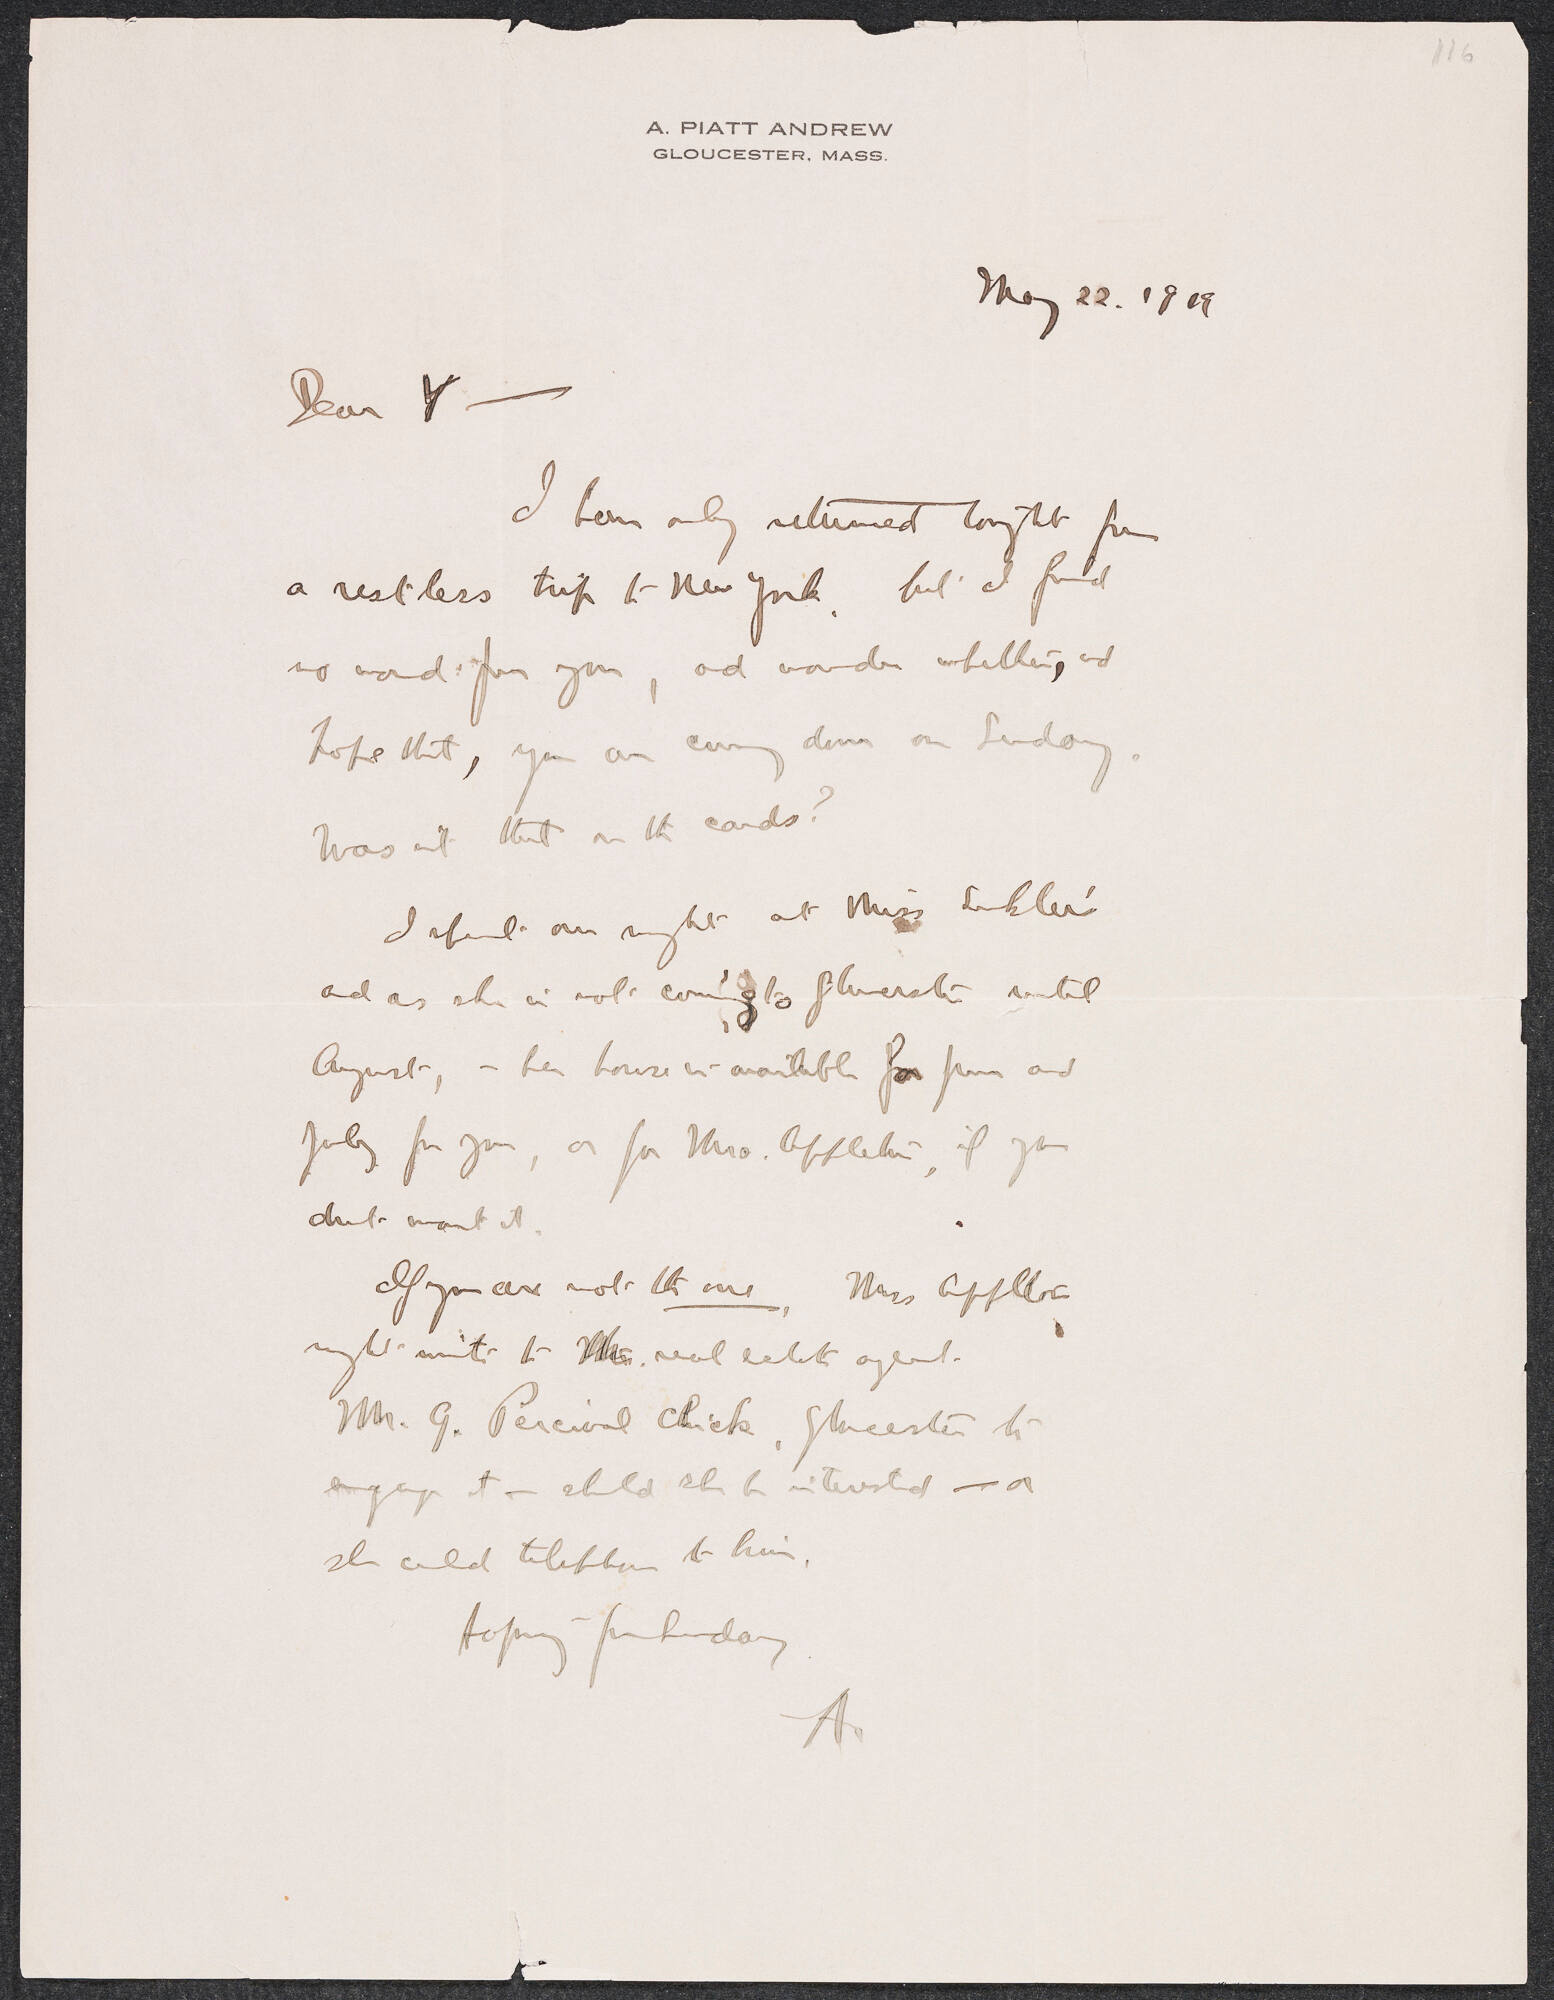 116
A. PIATT ANDREW
GLOUCESTER, MASS.
May 22. 1919
Dear Y —
I have only returned tonight from
a restless trip to New York, but I find
no word from you, and wonder whether, and
hope that, you are coming down on Sunday.
Wasn't that on the cards?
I spent one night at Miss Sinkler's
and as she is not coming to Gloucester until
August, – her house is available for June and
July for you, or for Mrs. Appleton, if you
don't want it.
If you are not the one, Mrs Appleton
might write to the real estate agent
Mr. G. Percival Chick, Gloucester to
engage it – should she be interested — or
she could telephone to him.
Hoping for Sunday
A.